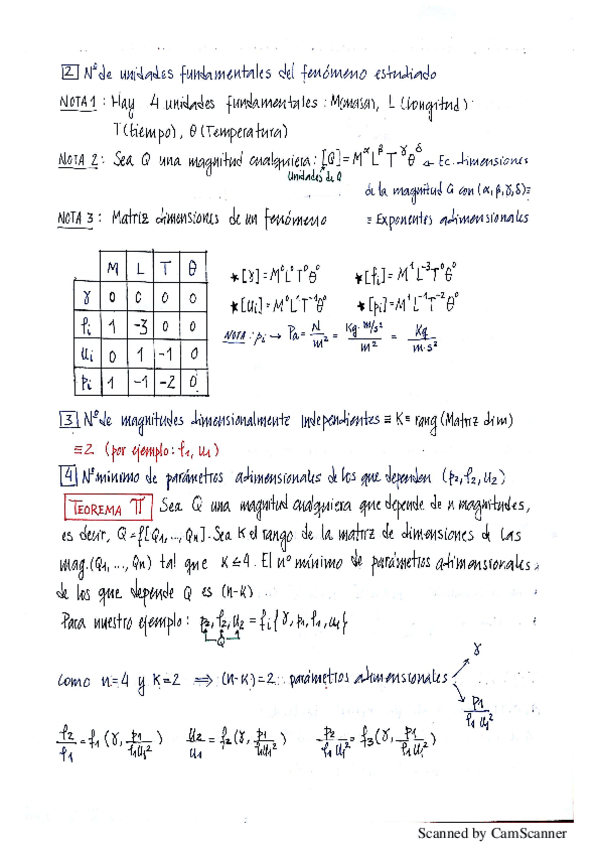 2 Nº de unidades fundamentales del fenómeno estudiado
NOTA 1: Hay 4 unidades fundamentales: M(masa), L (longitud)
T(tiempo), θ (Temperatura)
NOTA 2: Sea Q una magnitud cualquiera: [Q] = M^α L^β T^γ θ^δ ← Ec. dimensiones
Unidades de Q
de la magnitud Q con (α,β,γ,δ)≡
≡ Exponentes adimensionales
NOTA 3: Matriz dimensiones de un fenómeno
M L T θ
γ 0 0 0 0
ρi 1 -3 0 0
ui 0 1 -1 0
pi 1 -1 -2 0
★[γ] = M⁰L⁰T⁰θ⁰ ★[ρi] = M¹L⁻³T⁰θ⁰
★[ui] = M⁰L¹T⁻¹θ⁰ ★[pi] = M¹L⁻¹T⁻²θ⁰
NOTA: pi → Pa = N/m² = Kg·m/s²/m² = Kg/m·s²
3 Nº de magnitudes dimensionalmente independientes ≡ K ≡ rang (Matriz dim)
≡2 (por ejemplo: ρ1, u1)
4 Nº mínimo de parámetros adimensionales de los que dependen (p2, ρ2, u2)
TEOREMA Π Sea Q una magnitud cualquiera que depende de n magnitudes,
es decir, Q = f[Q1, ..., Qn]. Sea K el rango de la matriz de dimensiones de las
mag. (Q1, ..., Qn) tal que K ≤ 4. El nº mínimo de parámetros adimensionales
de los que depende Q es (n-K)
Para nuestro ejemplo: p2, ρ2, u2 = fi{γ, p1, ρ1, u1}
Q
como n=4 y K=2 ⟹ (n-K)=2 parámetros adimensionales
γ
p1/ρ1u1²
ρ2/ρ1 = f1(γ, p1/ρ1u1²) u2/u1 = f2(γ, p1/ρ1u1²) p2/ρ1u1² = f3(γ, p1/ρ1u1²)
Scanned by CamScanner